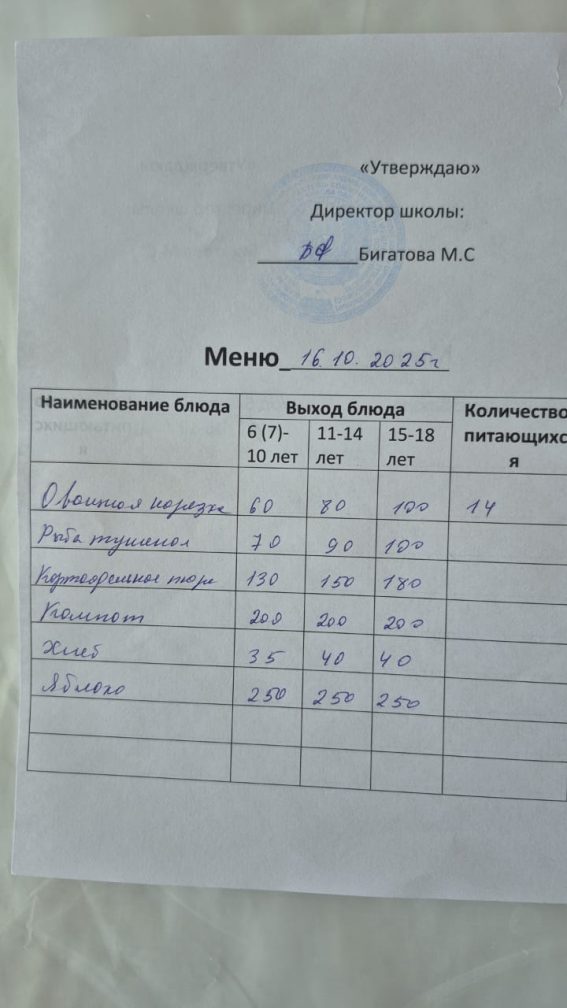 «Утверждаю»
Директор школы:
Бигатова М.С
Меню_ 16.10.2025г
Наименование блюда Выход блюда Количество питающихс я
6 (7)- 10 лет 11-14 лет 15-18 лет
Овощная нарезка 60 80 100 14
Рыба тушеная 70 90 100
Картофельное пюре 130 150 180
Компот 200 200 200
Хлеб 35 40 40
Яблоко 250 250 250